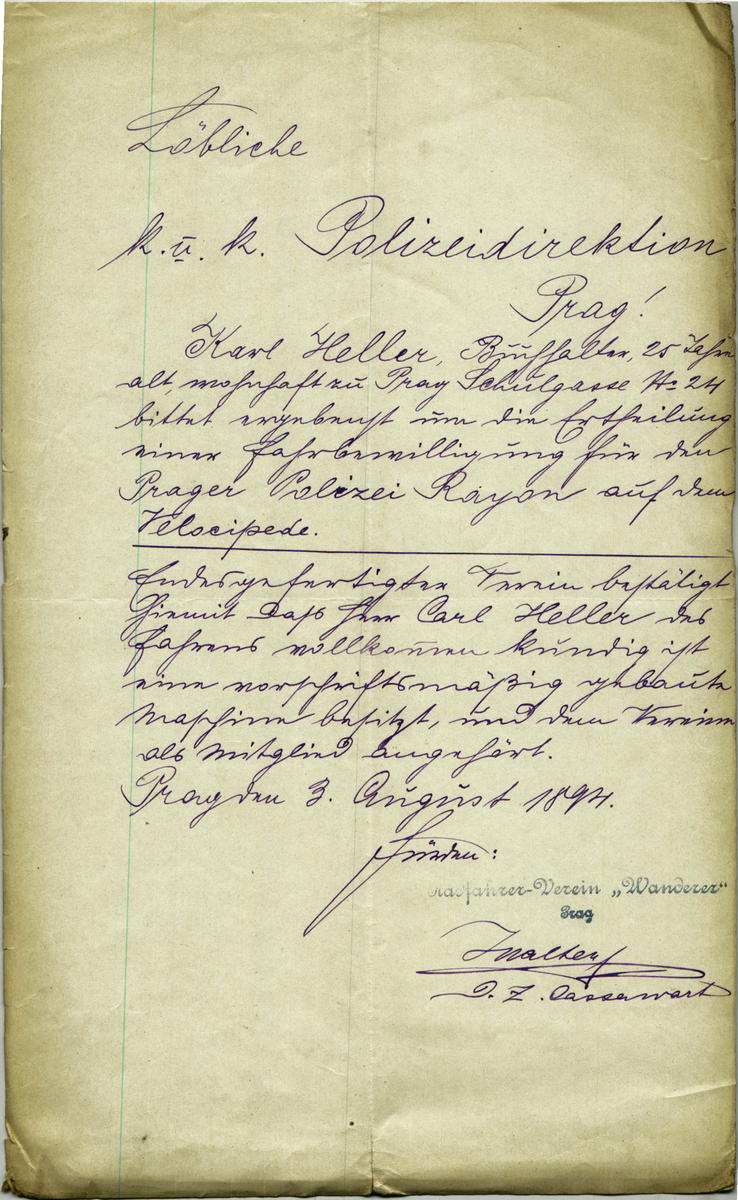 Löbliche
k. u. k. Polizeidirektion
Prag!
Karl Heller, Buchhalter, 25 Jahre
alt, wohnhaft zu Prag Schulgasse No 24
bittet ergebenst um die Ertheilung
einer Fahrbewilligung für den
Prager Polizei Rayon auf dem
Velocipede.
Endesgefertigter Verein bestätigt
hiemit daß Herr Carl Heller des
Fahrens vollkommen kundig ist
eine vorschriftsmäßig gebaute
Maschine besitzt, und dem Vereine
als Mitglied angehört.
Prag den 3. August 1894.
Für den:
Radfahrer-Verein „Wanderer"
Prag
D. Z. Cassawart